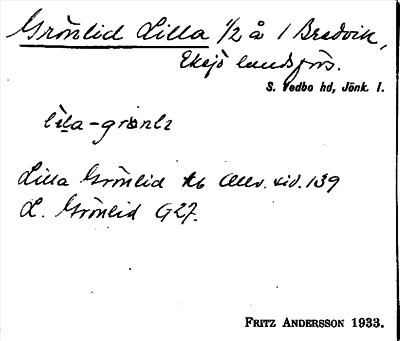 Grönlid Lilla 1/2 å 1 Bredvik,
Eksjö landsförs.
S. Vedbo hd, Jönk. l.
lila-grönli
Lilla Grönlid Kb Allv. sid. 139
L. Grönlid G27.
FRITZ ANDERSSON 1933.